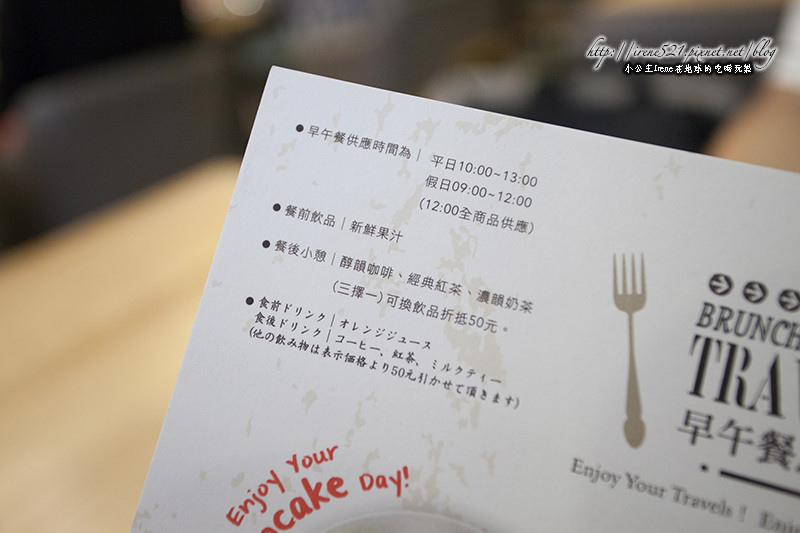 http://irene521.pixnet.net/blog
小公主Irene在地球的吃喝玩樂
●早午餐供應時間為｜平日10:00~13:00
假日09:00~12:00
(12:00全商品供應)
●餐前飲品｜新鮮果汁
●餐後小憩｜醇韻咖啡、經典紅茶、濃韻奶茶
(三擇一)可換飲品折抵50元。
●食前ドリンク｜オレンジジュース
食後ドリンク｜コーヒー、紅茶、ミルクティー
(他の飲み物は表示価格より50元引かせて頂きます)
BRUNCH
TRAV
早午餐
Enjoy Your Travels！ Enjo
Enjoy Your
ncake Day!